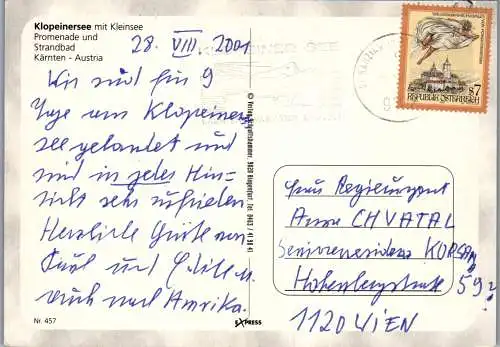 Klopeinersee mit Kleinsee
Promenade und
Strandbad
Kärnten - Austria
28. VIII. 2001
KLOPEINER SEE
S 7
REPUBLIK ÖSTERREICH
Wir sind für 9
Tage am Klopeiner
see gelandet und
sind in jeder Hin-
sicht sehr zufrieden
Herzliche Grüße von
und
auch nach Amerika.
Frau Regierungsrat
Anna CHVATAL
Seniorenresidenz
Hohenbergstraße
1120 WIEN
Nr. 457
EXPRESS